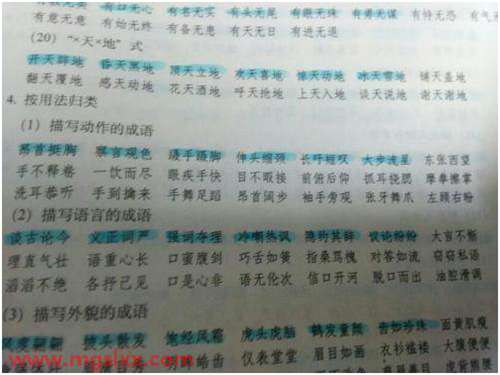 有口无心 有名无实 有头无尾 有眼无珠 有勇无谋 有恃无恐
有意无意 有始无终 有备无患 有天无日 有进无退
(20) “×天×地” 式
开天辟地 昏天黑地 顶天立地 欢天喜地 惊天动地 冰天雪地 铺天盖地
翻天覆地 感天动地 花天酒地 呼天抢地 上天入地 谈天说地 谢天谢地
4. 按用法归类
(1) 描写动作的成语
昂首挺胸 察言观色 蹑手蹑脚 伸头缩颈 长吁短叹 大步流星 东张西望
手不释卷 一饮而尽 眼疾手快 目不暇接 前俯后仰 抓耳挠腮 摩拳擦掌
洗耳恭听 手到擒来 手舞足蹈 昂首阔步 袖手旁观 张牙舞爪 左顾右盼
(2) 描写语言的成语
谈古论今 义正词严 强词夺理 冷嘲热讽 隐约其辞 议论纷纷 大言不惭
理直气壮 语重心长 口蜜腹剑 巧舌如簧 指桑骂槐 对答如流 窃窃私语
滔滔不绝 各抒己见 口是心非 语无伦次 信口开河 脱口而出 油腔滑调
(3) 描写外貌的成语
披头散发 饱经风霜 虎头虎脑 鹤发童颜 面黄肌瓦
仪表堂堂 眉目如画 衣衫褴褛 大腹便便